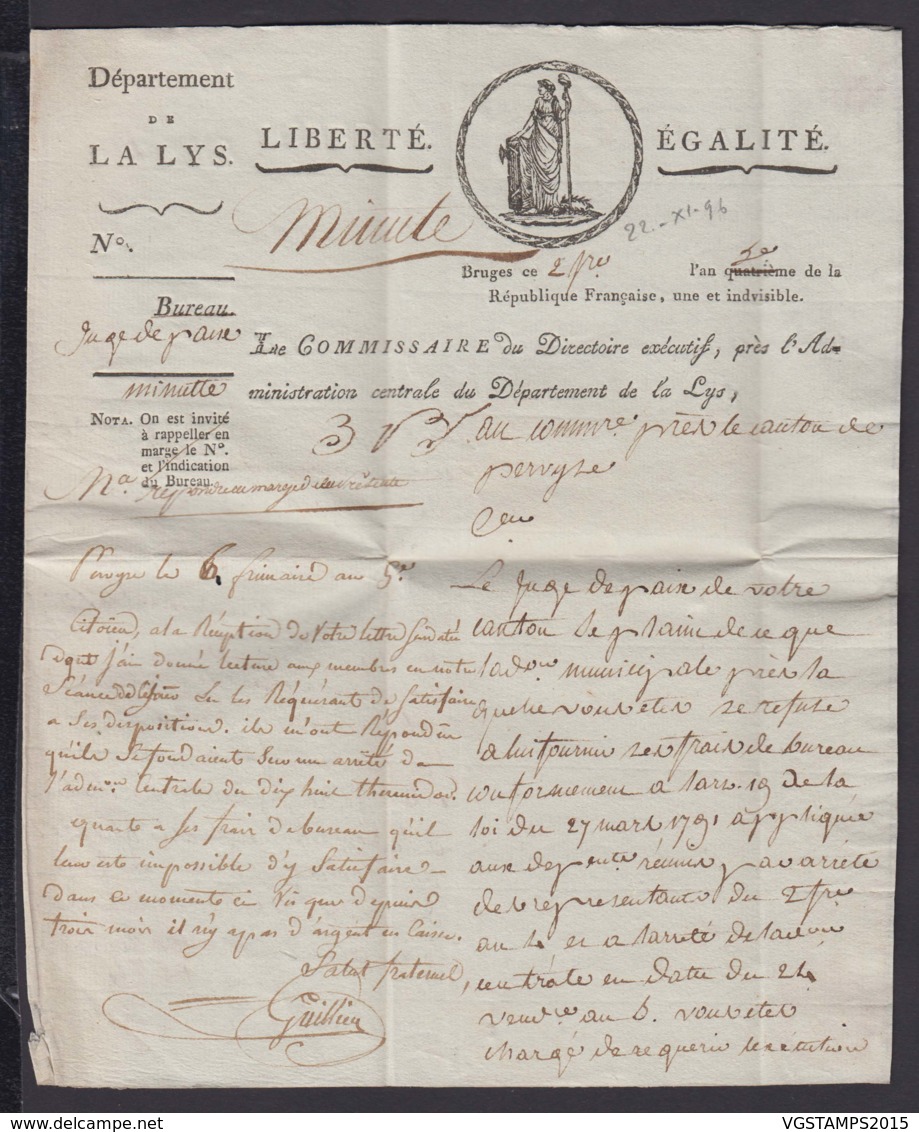 Département
DE
LA LYS.
LIBERTÉ.
ÉGALITÉ.
N°.
Minute
22.-XI-96
Bruges ce 2 fre l'an quatrième 5e de la
République Française, une et indvisible.
Bureau.
Juge de paix
minutte
LE COMMISSAIRE du Directoire exécutif, près l'Ad-
ministration centrale du Département de la Lys,
NOTA. On est invité
à rappeller en
marge le N°.
et l'indication
du Bureau.
Na répondre en marge de la présente
au commre près le canton de
pervyse
Le Juge de paix de votre
canton se plaint de ce que
l'adon municipale près la
quelle vous etes se refuse
a lui fournir ses frais de bureau
conformement a l'art. 19 de la
loi du 27 mars 1791 appliquée
aux depents réunis par arrêté
des représentants du 2 fre
an 4 et a l'arreté de l'adon
centrale en date du 24
vendre an 5. vous etes
chargé de requerir l'exécution
Pervyse le 6. frimaire an 5e
Citoïen, a la Réception de Votre lettre
dont j'ai donné lecture aux membres en notre
Séance de les Réquerant de Satisfaire
a Ses disposition. ils m'ont Repondu
qu'ils Se fondaient Sur un arrêté de
l'admon Centrale du dix huit thermidor.
equante a ses frais de bureau qu'il
leur est impossible d'y Satisfaire
dans ce momente ci Vu que depuis
trois mois il n'y a pas d'argent en Caisse.
Salut fraternel,
VGSTAMPS2015